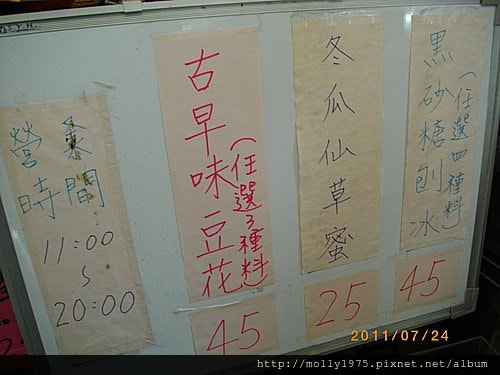 黑砂糖刨冰
(任選四種料)
45
冬瓜仙草蜜
25
古早味豆花
(任選3種料)
45
營業時間
11:00
~
20:00
2011/07/24
http://molly1975.pixnet.net/album